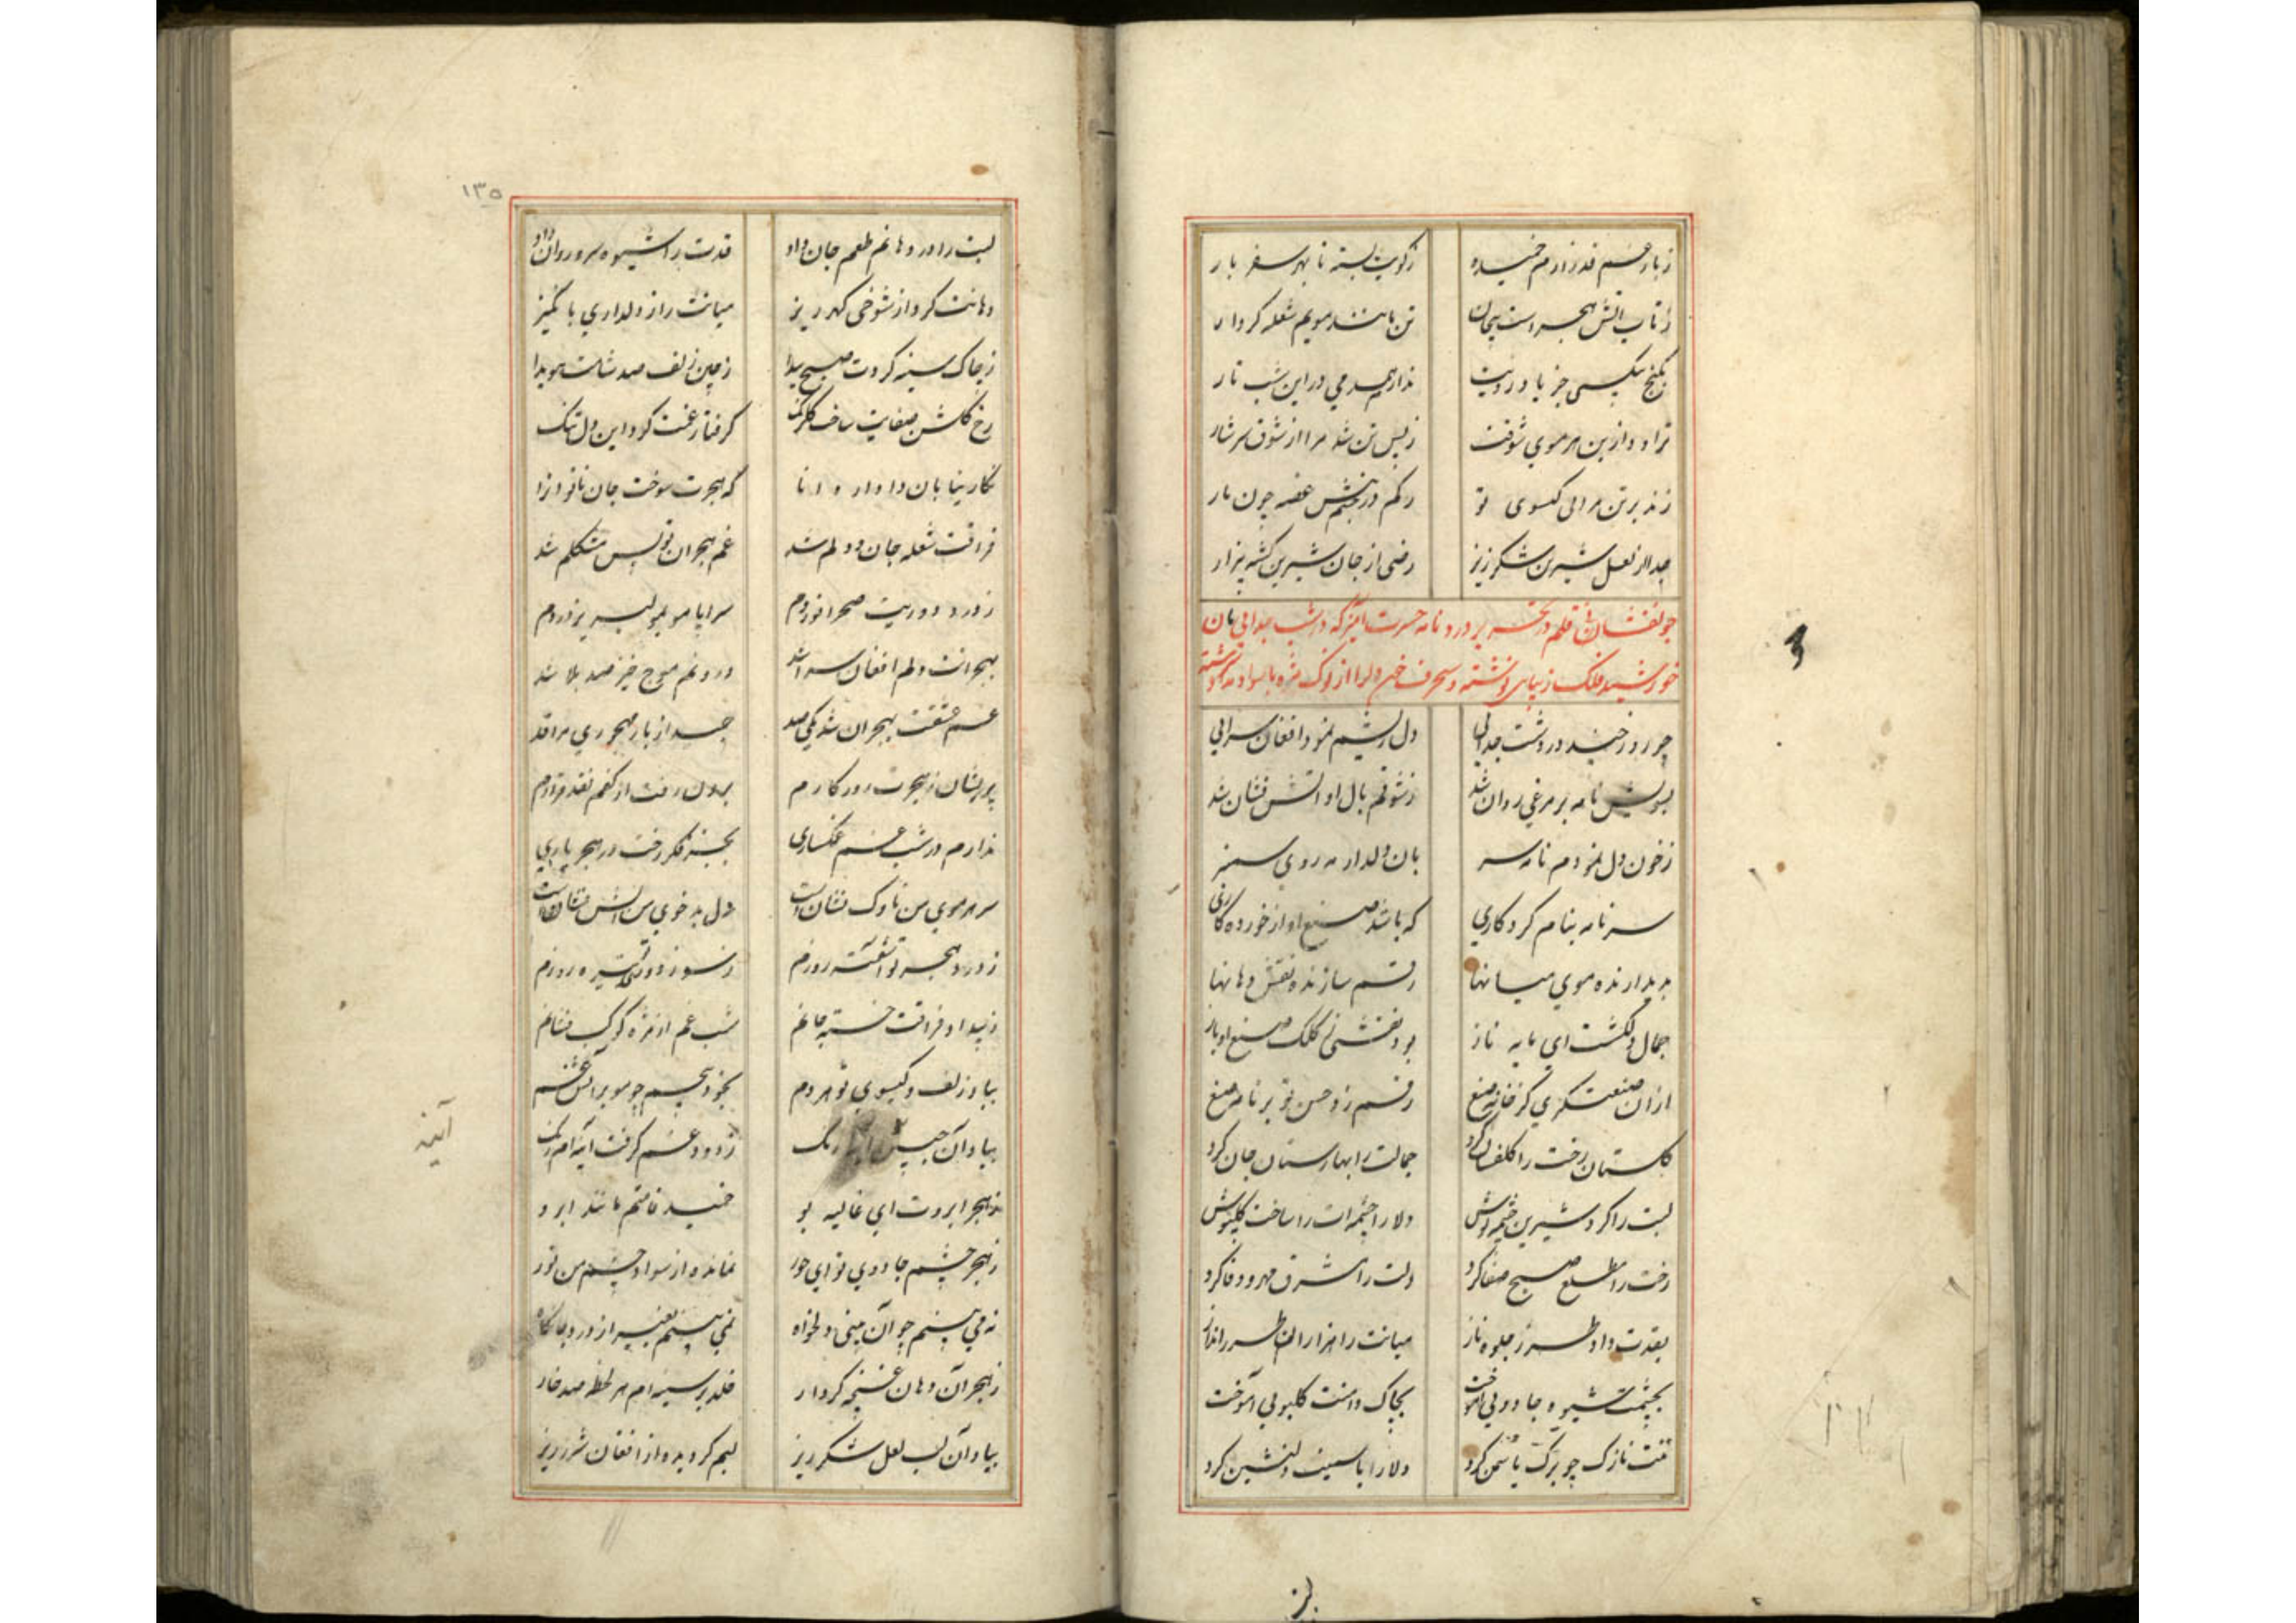 ز بار غم قد زارم خمیده ز کویت بسته تا بهر سفر بار
ز تاب آتش هجرت پیچان تن مانند مویم شعله کردار
بکنج بیکسی جز یاد رویت ندارم همدمی در این شب تار
تراود از بن هر موی شوقت ز بس تن شد مرا از شوق سرشار
زند بر تن مرا بی کیسوی تو رکم در پیچش عضو چون مار
جدا از لعل شیرین شکرریز رضی از جان شیرین کشته بیزار
قلم در پر درد نامه حسرت آمیز که در شب جدایی بان
خورشید فلک زیبایی نوشته و دل را از نوک مژه با سواد
چو رو در دشت جدایی دل ریشم نمود افغان سرایی
بسویش نامه بر مرغی روان شد ز شوقم بال او آتش فشان شد
ز خون دل نمودم نامه سر بان دلدار مه روی سمنبر
سر نامه بنام کردکاری که باشد صنع او از خورده کاری
پدیدارنده موی میانها رقم سازنده نقش دهانها
جمال دلکشت ای مایه ناز بود نقشی ز کلک صنع او باز
از آن صنعتکری کز خامه صنع رقم زد حسن تو بر نامه صنع
کلستان رخت را کلفشان کرد جمالت را بهارستان جان کرد
لبت را کرد شیرین چشمه نوش دلارا چشمه‌ات را ساخت کلپوش
رخت را مطلع صبح صفا کرد دلت را مشرق مهر و وفا کرد
بقدت داد طرز جلوه ناز میانت را هزاران طرز انداز
بچشمت شیوه جادویی آموخت بچاک دامنت کلبویی آموخت
تنت نازک چو برک یاسمن کرد دلارا یا دلنشین کرد
بز
۱۳۵
لبت را در دهانم طعم جان داد قدت را شیوه سرو روان داد
دهانت کرد از شوخی کهرریز میانت را ز دلداری
ز چاک سینه کردت صبح پیدا ز چین زلف صد شامت هویدا
رخ کلشن صفایت ساخت کلرنک کرفتار غمت کرد این دل تنک
نکارینا بان دادار دانا که هجرت سوخت جان ناتوان را
فراقت شعله جان و دلم شد غم هجران تو بس مشکلم شد
ز درد دوریت صحرا نوردم سراپا مو بمو لبریز دردم
بهجرانت دلم افغان سرا شد درونم موج خیز صد بلا شد
غم عشقت بهجران شد یکی صد جسد از بار مهجوری مرا قد
پریشان ز هجرت روزکارم برون رفت از کفم نقد قرارم
ندارم در شب غم غمکساری بجز فکر رخت در هجر یاری
سر هر موی من ناوک نشانست دل بد خوی من آتش فشانست
ز درد هجر تو آشفته روزم ز سوز تیره روزم
ز بیداد فراقت خسته جانم شب غم از مژه کوکب فشانم
بیاد زلف و کیسوی تو هر دم بخود پیچم چو مو بر آتش غم
بیاد آن جبین رنک ز دود غم کرفت آینه‌ام زنک
آینه
ز هجر ابروت ای غالیه بو خمیده قامتم مانند ابرو
ز هجر چشم جادوی تو ای حور نمانده از سواد چشم من نور
نه می‌بینم چو آن بینی دلخواه نمی‌بینم بغیر از درد جانکاه
ز هجر آن دهان غنچه کردار خلد بر سینه‌ام هر لحظه صد خار
بیاد آن لب لعل شکرریز لبم کردیده از افغان شررریز